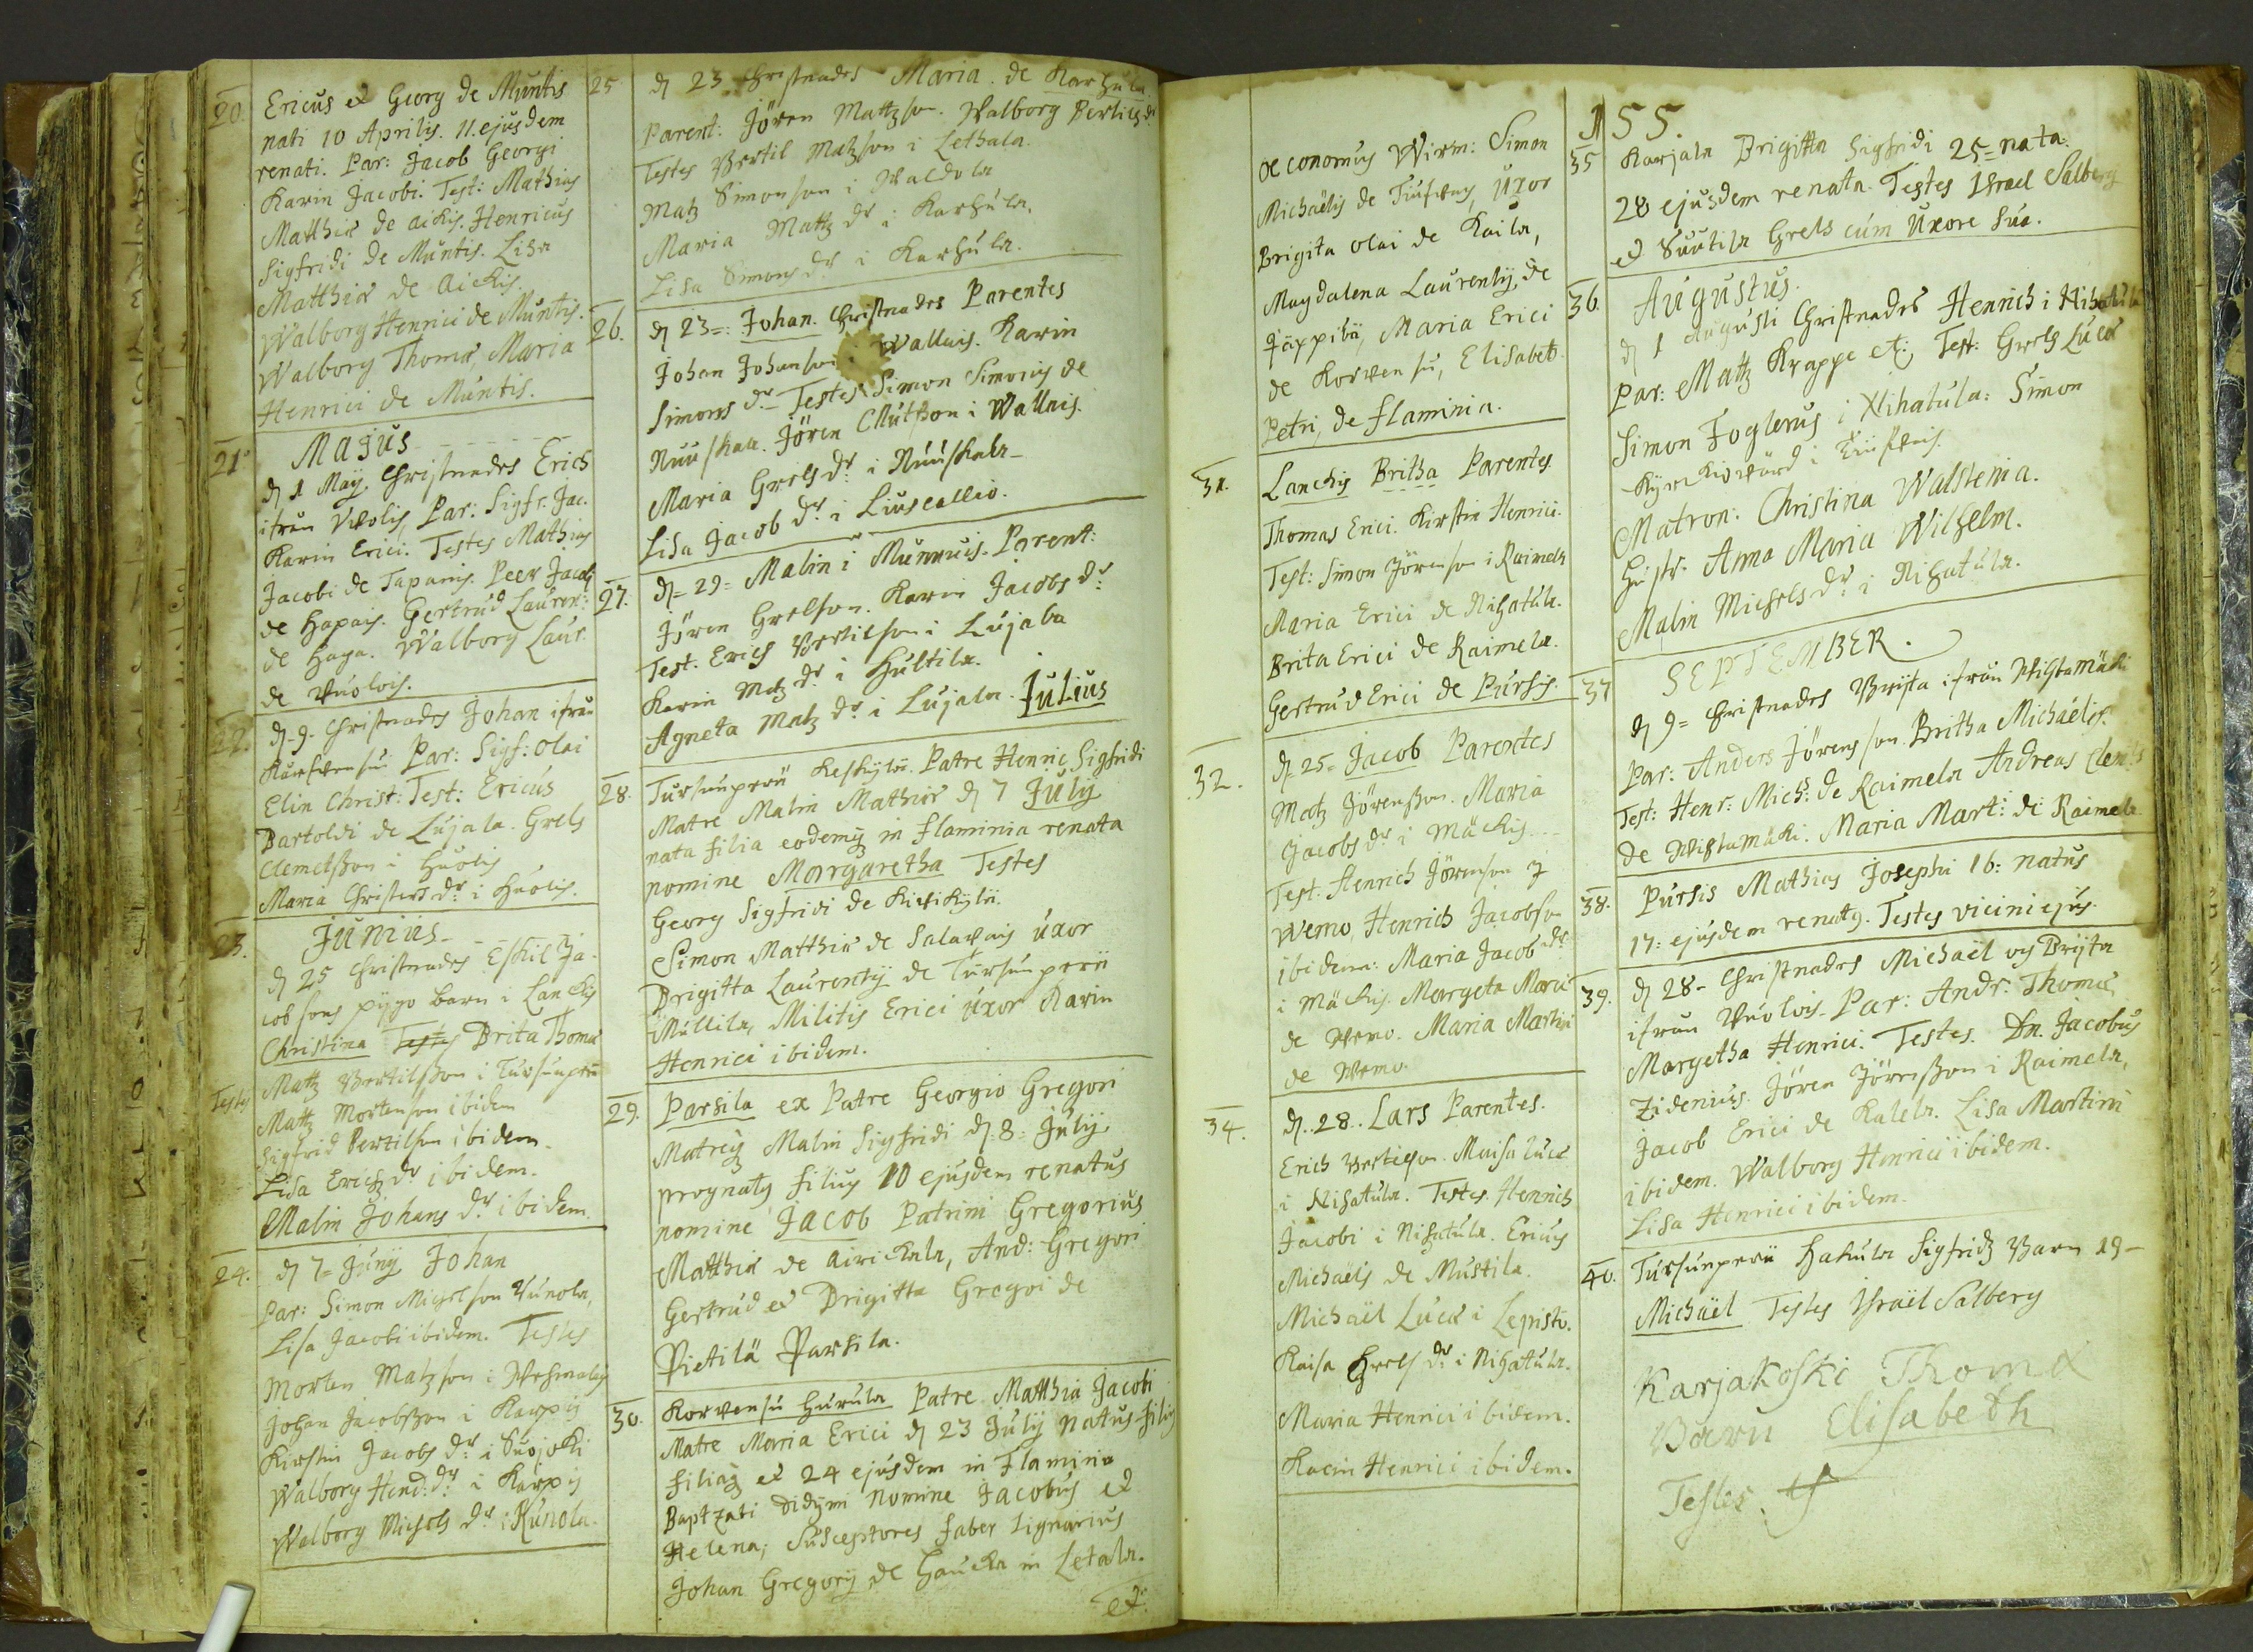 20. Ericus et Georg de Muntis
nati 10 Aprilis. 11. ejusdem
renati. Par: Jacob Georgi
Karin Jacobi. Test: Mathias
Matthiæ de aickis. Henricus
Sigfridi de Muntis. Lisa
Matthiæ de Aickis.
Walborg Henrici de Muntis.
Walborg Thomæ, Maria
Henrici de Muntis.
Majus
21. d 1 Maij. Christnades Erich
ifrån Vvolis Par: Sigfr. Jac.
Karin Erici. Testes Mathias
Jacobi de Tapanis. Peer Jacobs
de Hapais. Gertrud Lauren:
de Haga. Walborg Laur.
de Vuolois.
22. d. 9. Christnades Johan ifrån
Par: Sigf: Olai
Elin Christ: Test: Ericus
Bartoldi de Lujala. Grels
Clemetsson i Huolis
Maria Christers dr i Huolis.
23. Junius
d 25 Christnades Eskil Ja-
cobsons pijgo barn i Lanckis
Christina Testes Brita Thomæ
Testes Matz Bertilsson i Tursunperä
Matz Mortenson ibidem
Sigfrid Bertilson ibidem.
Lisa Erichz dr ibidem.
Malin Johans dr ibidem.
24. d 7= Junij Johan
Par: Simon Michelson Kunola,
Lisa Jacobi ibidem. Testes
Morten Matzson i
Johan Jacobsson i Karpis
Kirstin Jacobs dr i Suojoki
Walborg Hend: dr i Karpis
Walborg Michels dr i Kunola.
25 d 23 Christnades Maria de Karhula.
Parent: Jören Mattzson. Walborg Bertils dr
Testes Bertil Matzson i Lethala.
Matz Simonson i Waldola
Maria Mattz dr i Karhula.
Lisa Simons dr i Karhula.
26. d 23=: Johan. Christnades Parentes
Johan Johanson i Wallais. Karin
Simons dr Testes Simon Simonis de
Nuuskala. Jören Clutson i Wallais.
Maria Grels dr i Nuuskala
Lisa Jacob dr i Liuscallio.
27. d= 29= Malin i Munnuis. Parent:
Jören Grelson. Karin Jacobs dr:
Test. Erich Bertilson i Lujala
Karin Matz dr i Hultila.
Agneta Matz dr i Lujala. Julius
28. Tursunperä Keskijlä. Patre Henric Sigfridi
Matre Malin Mathiæ d 7 Julij
nata filia eodemq in Flaminia renata
nomine Margaretha Testes
Georg Sigfridi de Kivikijlä.
Simon Matthiæ de Salavais uxor
Brigitta Laurentij de Tursunperä
Millila, Militis Erici uxor Karin
Henrici ibidem.
29. Parsila ex Patre Georgio Gregori
Matreq Malin Sigfridi d: 8: Julij.
prognatg filius 10 ejusdem renatus
nomine Jacob Patrini Gregorius
Matthiæ de Airickala, And: Gregori
Gertrud et Brigitta Gregoi de
Pietilä Parsila.
30. Korvensu Hurula Patre Matthia Jacobi
Matre Maria Erici d 23 Julij natus filius
filiaq et 24 ejusdem in Flaminia
Baptzati didijmi Nomine Jacobus et
Helena, Susceptores faber Lignarius
Johan Gregorij de Haucka in Letala.
et
oeconomus Wirm: Simon
Michaëlis de Tiusvais, Uxor
Brigita Olai de Kaila,
Magdalena Laurentij, de
Jäppilä, Maria Erici
de Korvensu, Elisabet
Petri, de Flaminia.
31. Lanckis Britha Parentes
Thomas Erici. Kirstin Henrici.
Test: Simon Jörenson i Raimela
Maria Erici de Nihatula.
Brita Erici de Raimela.
Gertrud Erici de Pursis.
32. d. 25= Jacob Parentes
Matz Jörensson. Maria
Jacobs dr i Mäckis.
Test. Henrich Jörenson i
Wemo, Henrich Jacobson
ibidem: Maria Jacob dr
i Mäckis. Margeta Mari
de Wemo. Maria Martini
de Wemo.
34. d. 28. Lars Parentes.
Erich Bertilson. Maisa Lucæ
i Nihatula. Testes. Henrich
Jacobi i Nihatula. Ericus
Michaëlis de Mustila.
Michaël Lucæ i Lepistö.
Kaisa Grels dr i Nihatula.
Maria Henrici ibidem.
Karin Henrici ibidem.
155.
35 Karjala Brigitta Sigfridi 25= nata.
28 ejusdem renata. Testes Israel Salberg
et Suutila Grels cum Uxore sua.
36. Augustus.
d 1 Augusti Christnades Henrich i Nihatula
Par: Matz Knappe et: Test: Grels Lucæ
Simon Foglerus i Nihatula: Simon
Kyrckiowärd i
Matron: Christina Walstenia.
Hustr. Anna Maria Wilhelm.
Malin Michels dr i Nihatula.
SEPTEMBER.
37 d 9= Christnades Brijta ifrån
Par: Anders Jörensson. Britha Michaëlis.
Test: Henr: Mich: de Raimela Andreas Clem
de Maria Mart: de Raimela
38. Pursis Mathias Josephi 16: natus
17: ejusdem renatg. Testes vicini ejus.
39. d 28- Christnades Michaël og Brijta
ifrån Vuolois. Par: Andr: Thomæ
Margetha Henrici. Testes. Dn. Jacobus
Zidenius. Jören Jörensson i Raimela,
Jacob Erici de Kalela. Lisa Martini
ibidem. Walborg Henrici ibidem.
Lisa Henrici ibidem.
40. Tursunperä Hakula Sigfridz Barn 19-
Michaël Testes Israël Salberg
Karjakoski Thomæ
Barn Elisabeth
Testes